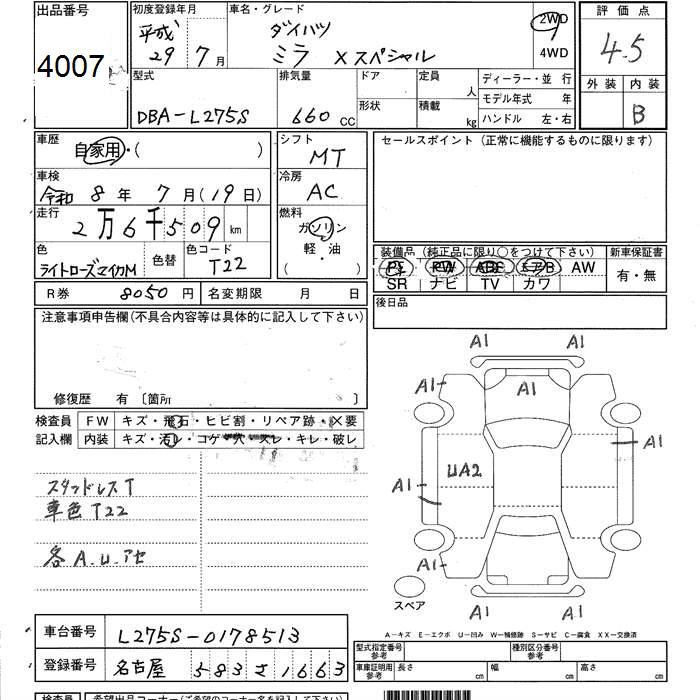 出品番号
4007
初度登録年月
平成
29 7月
車名・グレード
ダイハツ
ミラ Xスペシャル
2WD
4WD
評価点
4.5
外装 内装
B
型式
DBA-L275S
排気量
660 CC
ドア
形状
定員
人
積載
kg
ディーラー・並 行
モデル年式 年
ハンドル 左・右
車歴
自家用・( )
シフト
MT
セールスポイント (正常に機能するものに限ります)
車検
令和 8年 7月(19日)
冷房
AC
走行
2万6千509km
燃料
ガソリン
軽・油
( )
色
ライトローズマイカM
色替
色コード
T22
装備品 (純正品に限り○をつけて下さい)
PS PW ABS エアB AW
SR ナビ TV カワ
新車保証書
有・無
R券 8050円
名変期限 月 日
後日品
注意事項申告欄(不具合内容等は具体的に記入して下さい)
修復歴 有 〔箇所 〕
検査員
記入欄
FW キズ・飛石・ヒビ割・リペア跡・X要
内装 キズ・汚レ・コゲ・穴・スレ・キレ・破レ
スタッドレスT
車色T22
各A.U.アセ
A1 A1
A1 A1
A1
UA2
A1
A1
A1 A1
スペア
A-キズ E-エクボ U-凹み W-補修跡 S-サビ C-腐食 XX-交換済
車台番号 L275S-0178513
登録番号 名古屋 583さ1663
型式指定番号
参考
種別区分番号
参考
車庫証明用
参考
長さ cm
幅 cm
高さ cm
検査員
希望出品コーナー(ご希望のコーナー名を記入下さい)